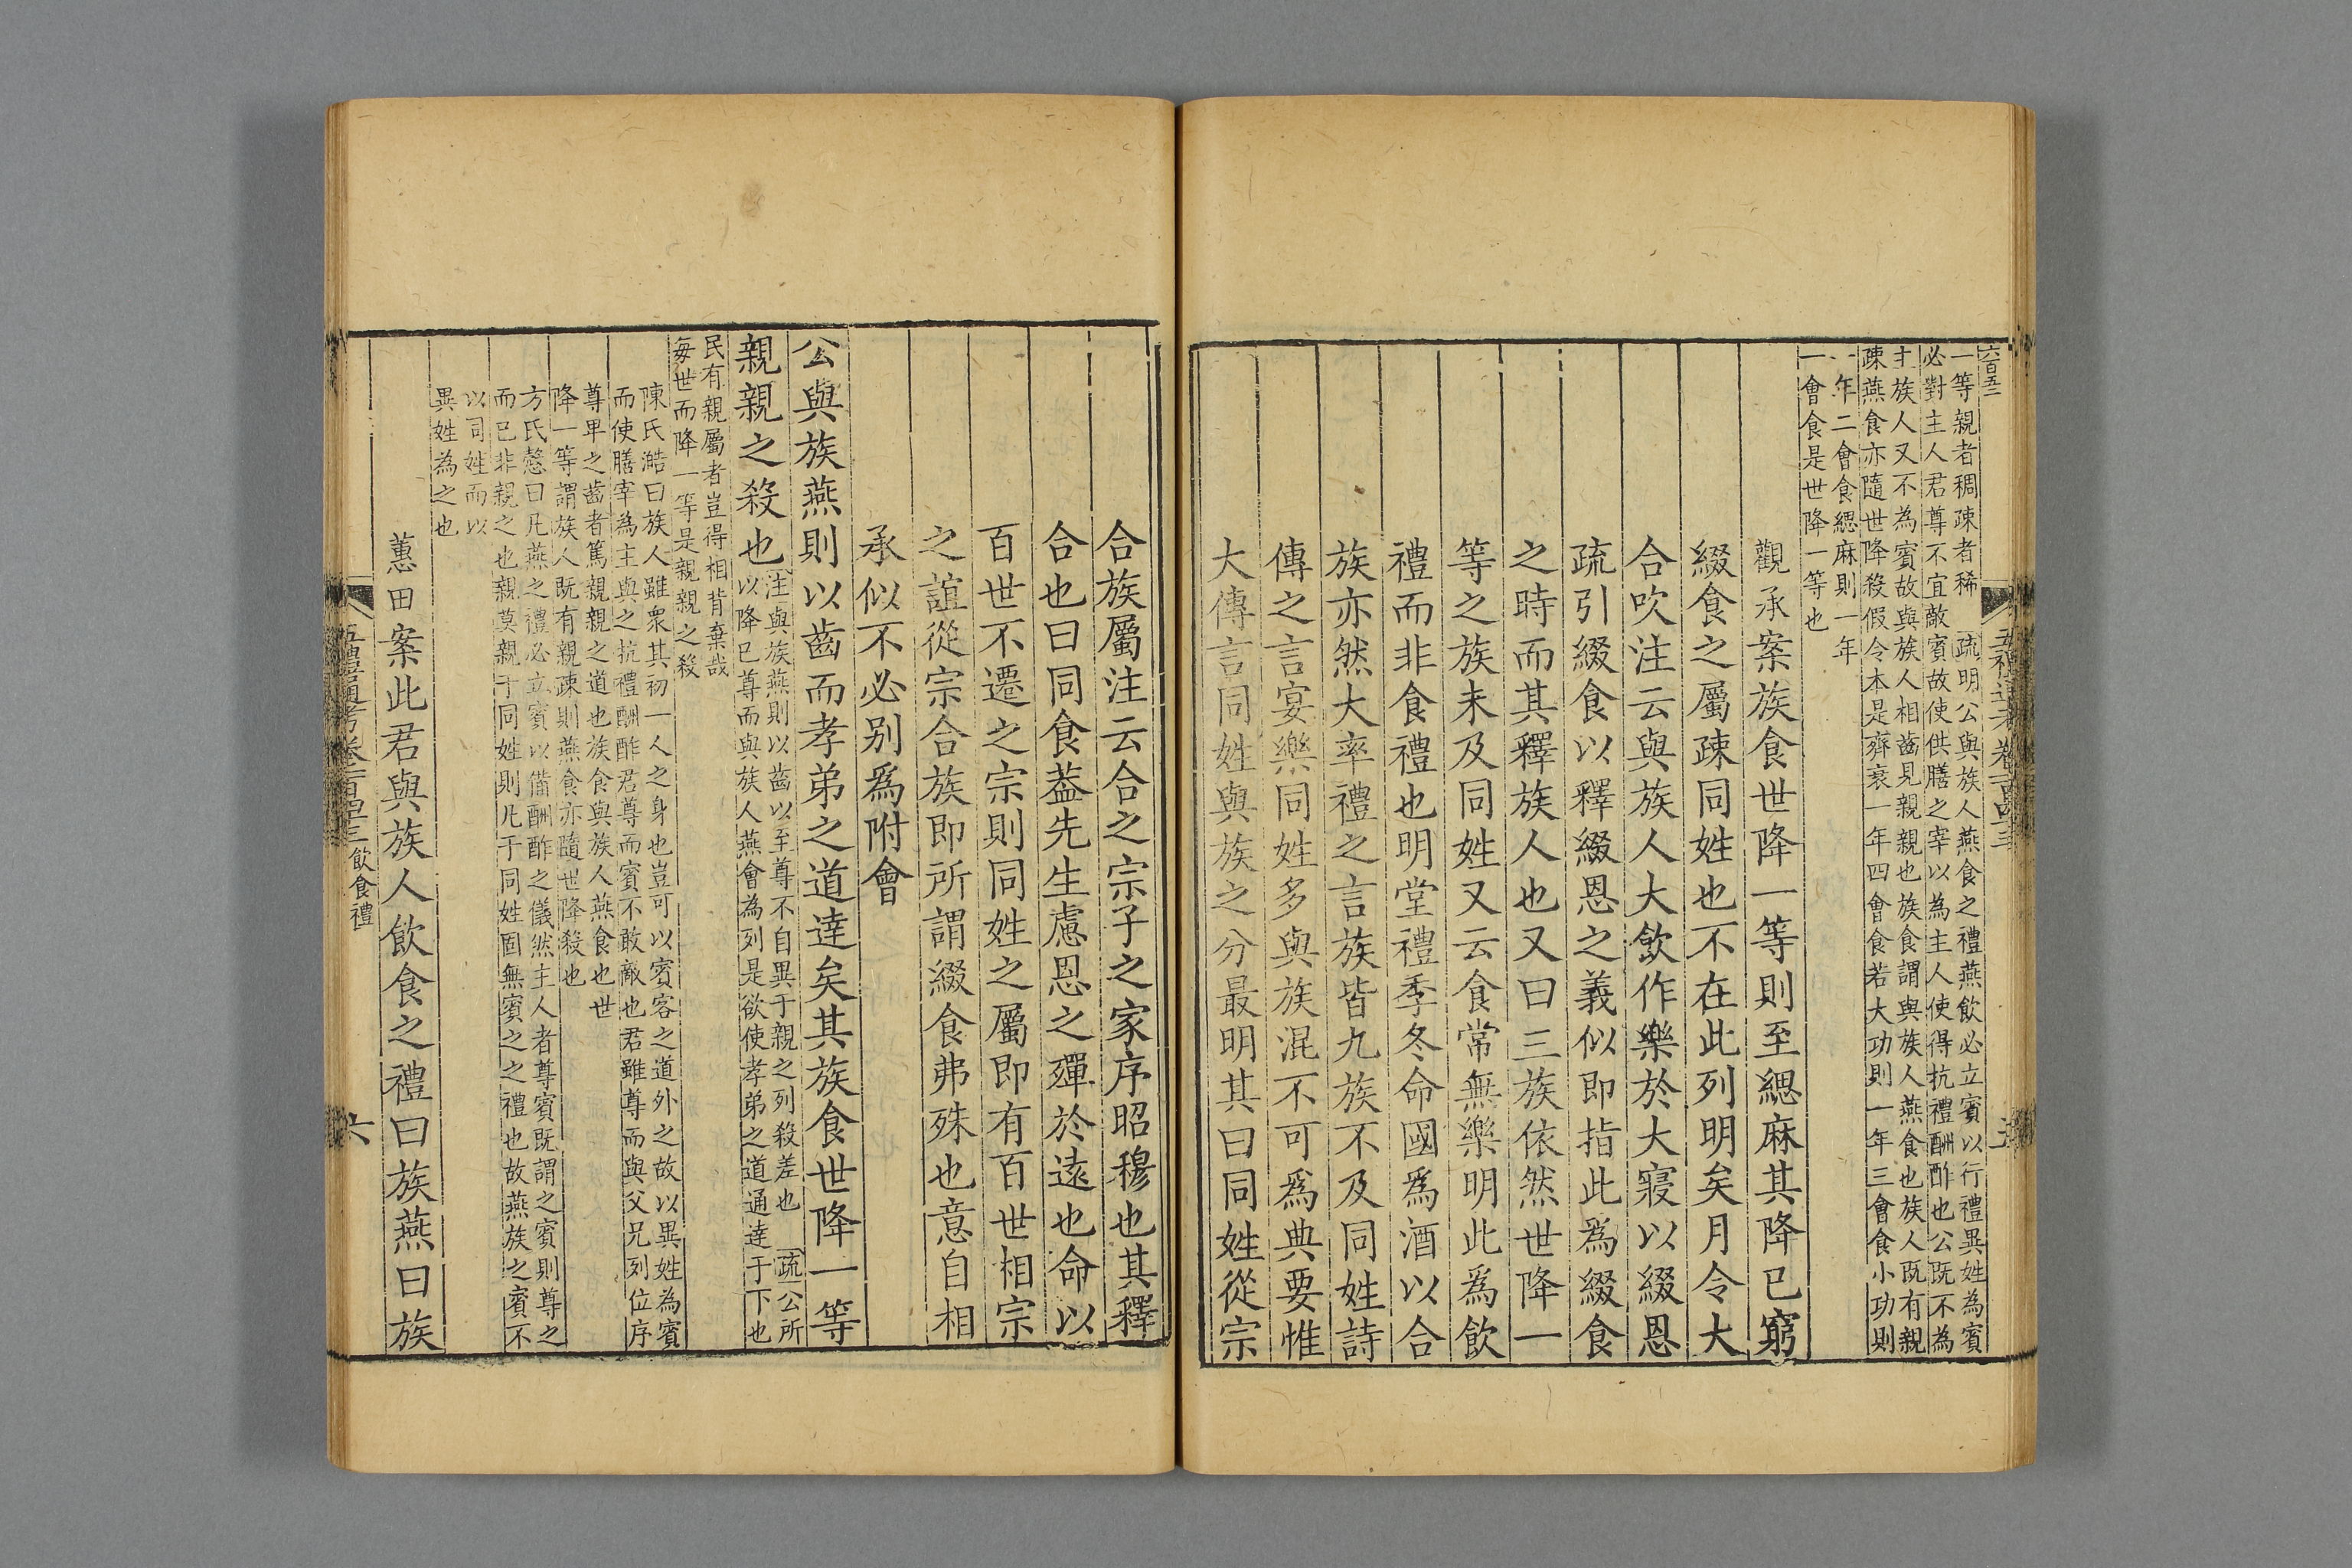 六百五一
一等親者稠疎者稀 疏明公與族人燕食之禮燕飲必立賓以行禮異姓為賓
必對主人君尊不宜敵賓故使供膳之宰以為主人使得抗禮酬酢也公既不為
主族人又不為賓故與族人相齒見親親也族食謂與族人燕食也族人既有親
疎燕食亦隨世降殺假令本是齊衰一年四會食若大功則一年三會食小功則
一年二會食緦麻則一年
一會食是世降一等也
觀承案族食世降一等則至緦麻其降已窮
綴食之屬疎同姓也不在此列明矣月令大
合吹注云與族人大飲作樂於大寢以綴恩
疏引綴食以釋綴恩之義似即指此爲綴食
之時而其釋族人也又曰三族依然世降一
等之族未及同姓又云食常無樂明此爲飲
禮而非食禮也明堂禮季冬命國爲酒以合
族亦然大率禮之言族皆九族不及同姓詩
傳之言宴樂同姓多與族混不可爲典要惟
大傳言同姓與族之分最明其曰同姓從宗
合族屬注云合之宗子之家序昭穆也其釋
合也曰同食葢先生慮恩之殫於遠也命以
百世不遷之宗則同姓之屬即有百世相宗
之誼從宗合族即所謂綴食弗殊也意自相
承似不必別爲附會
公與族燕則以齒而孝弟之道達矣其族食世降一等
親親之殺也 注與族燕則以齒以至尊不自異于親之列殺差也 疏公所
以降已尊而與族人燕會為列是欲使孝弟之道通達于下也
民有親屬者豈得相背棄哉
每世而降一等是親親之殺
陳氏澔曰族人雖衆其初一人之身也豈可以賓客之道外之故以異姓為賓
而使膳宰為主與之抗禮酬酢君尊而賓不敢敵也君雖尊而與父兄列位序
尊卑之齒者篤親親之道也族食與族人燕食也世
降一等謂族人既有親疎則燕食亦隨世降殺也
方氏慤曰凡燕之禮必立賓以備酬酢之儀然主人者尊賓既謂之賓則尊之
而已非親之也親莫親于同姓則凡于同姓固無賓之之禮也故燕族之賓不
以同姓而以
異姓為之也
蕙田案此君與族人飲食之禮曰族燕曰族
五禮通考卷一百四十三 飲食禮
六